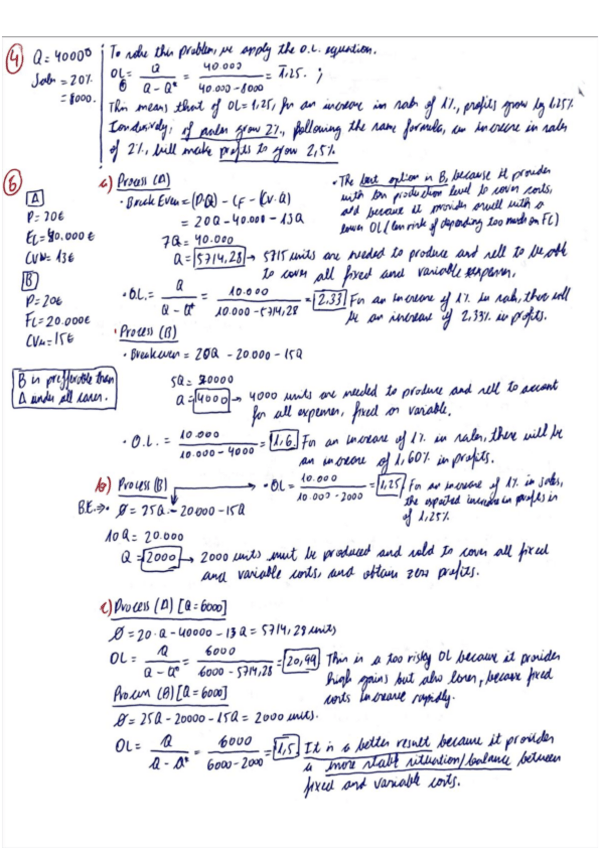 ④ Q = 40000 To solve this problem, we apply the O.L. equation.
Sales = 20% = 8000.
OL = Q / Q - Q* = 40.000 / 40.000 - 8000 = 1.25. ;
This means that of OL = 1,25, for an increase in sales of 1%, profits grow by 1.25%
Conclusively; if sales grow 2%, following the same formula, an increase in sales
of 2%, will make profits to grow 2,5%
⑥
A
P = 20€
FC = 40.000€
CVu = 13€
B
P = 20€
FC = 20.000€
CVu = 15€
B is prefferable than
A under all cases.
a) Process (A)
· Break Even = (P·Q) - CF - (CV·Q)
= 20Q - 40.000 - 13Q
7Q = 40.000
Q = 5714,28 → 5715 units are needed to produce and sell to be able
to cover all fixed and variable expenses.
· The best option is B, because it provides
with less production level to cover costs,
and because it provides as well with a
lower OL (less risk of depending too much on FC)
· O.L. = Q / Q - Q* = 10.000 / 10.000 - 5714,28 = 2.33 For an increase of 1% in sales, there will
be an increase of 2.33% in profits.
· Process (B)
· Break even = 20Q - 20.000 - 15Q
5Q = 20000
Q = 4000 → 4000 units are needed to produce and sell to account
for all expenses, fixed or variable.
· O.L. = 10.000 / 10.000 - 4000 = 1,6. For an increase of 1% in sales, there will be
an increase of 1,60% in profits.
b) Process (B) → · OL = 10.000 / 10.000 - 2000 = 1,25 For an increase of 1% in sales,
the expected increase in profits is
of 1,25%
B.E. → · 0 = 25Q - 20000 - 15Q
10Q = 20.000
Q = 2000 → 2000 units must be produced and sold to cover all fixed
and variable costs, and obtain zero profits.
c) Process (A) [Q = 6000]
0 = 20·Q - 40000 - 13Q = 5714,28 units
OL = Q / Q - Q* = 6000 / 6000 - 5714,28 = 20,99 This is a too risky OL because it provides
high gains but also losses, because fixed
costs increase rapidly.
Process (B) [Q = 6000]
0 = 25Q - 20000 - 15Q = 2000 units.
OL = Q / Q - Q* = 6000 / 6000 - 2000 = 1,5. It is a better result because it provides
a more stable situation/balance between
fixed and variable costs.